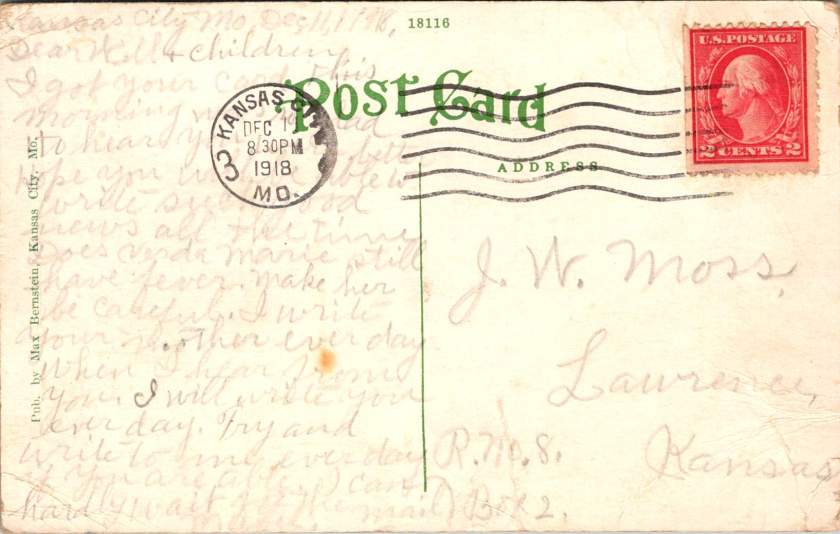 Kansas City Mo, Dec 11, 1918,
Dear Will & children
I got your card this
morning was so glad
to hear you
hope you will be able to
write such good
news all the time
Does Verda Marie still
have fever. Make her
be careful. I write
your mother ever day
when I hear from
you. I will write you
ever day. Try and
write to me ever day
if you are able. I can
hardly wait for the mail
18116
POST Card
ADDRESS
KANSAS CITY
DEC 11
8 30PM
1918
MO.
U.S. POSTAGE
2 CENTS 2
J. W. Moss,
Lawrence,
R.No.8. Kansas
Box 2.
Pub. by Max Bernstein, Kansas City, Mo.